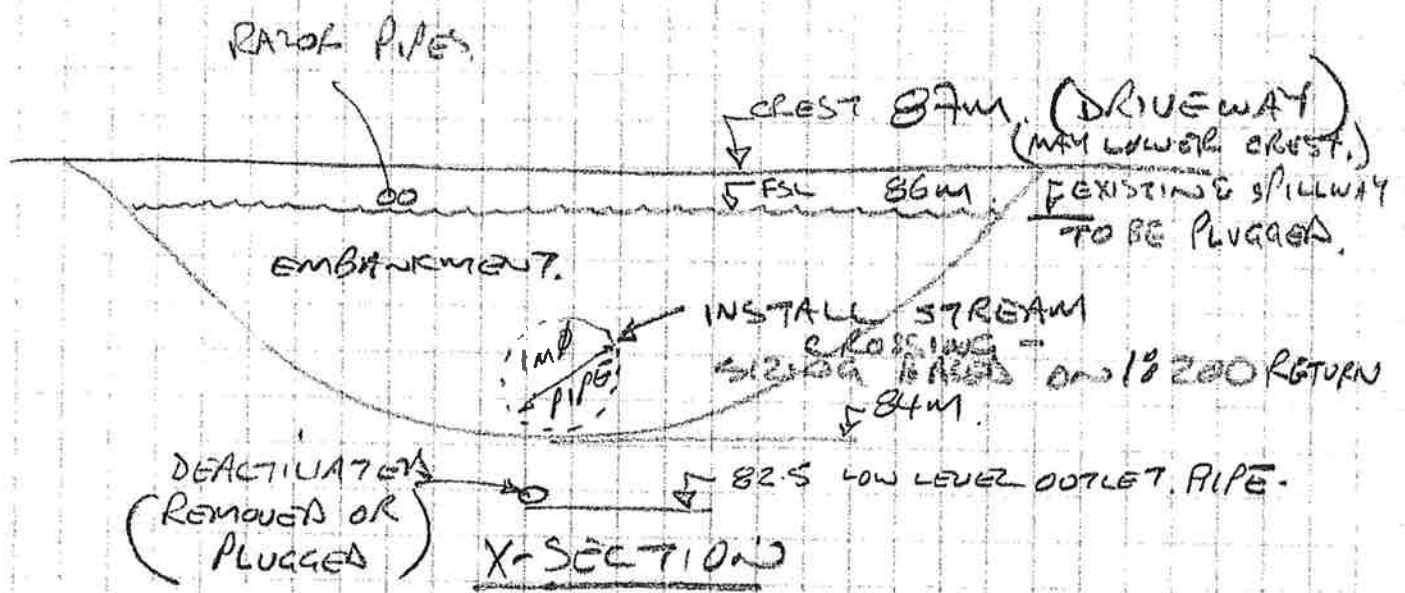 RAZOR PIPES
CREST 87M. (DRIVEWAY)
(MAY LOWER CREST.)
FSL 86M
EXISTING SPILLWAY
TO BE PLUGGED.
EMBANKMENT.
INSTALL STREAM
CROSSING -
SIZING BASED ON 1:200 RETURN
1MØ
PIPE
84M.
DEACTIVATED
(REMOVED OR
PLUGGED)
82.5 LOW LEVEL OUTLET. PIPE.
X-SECTION